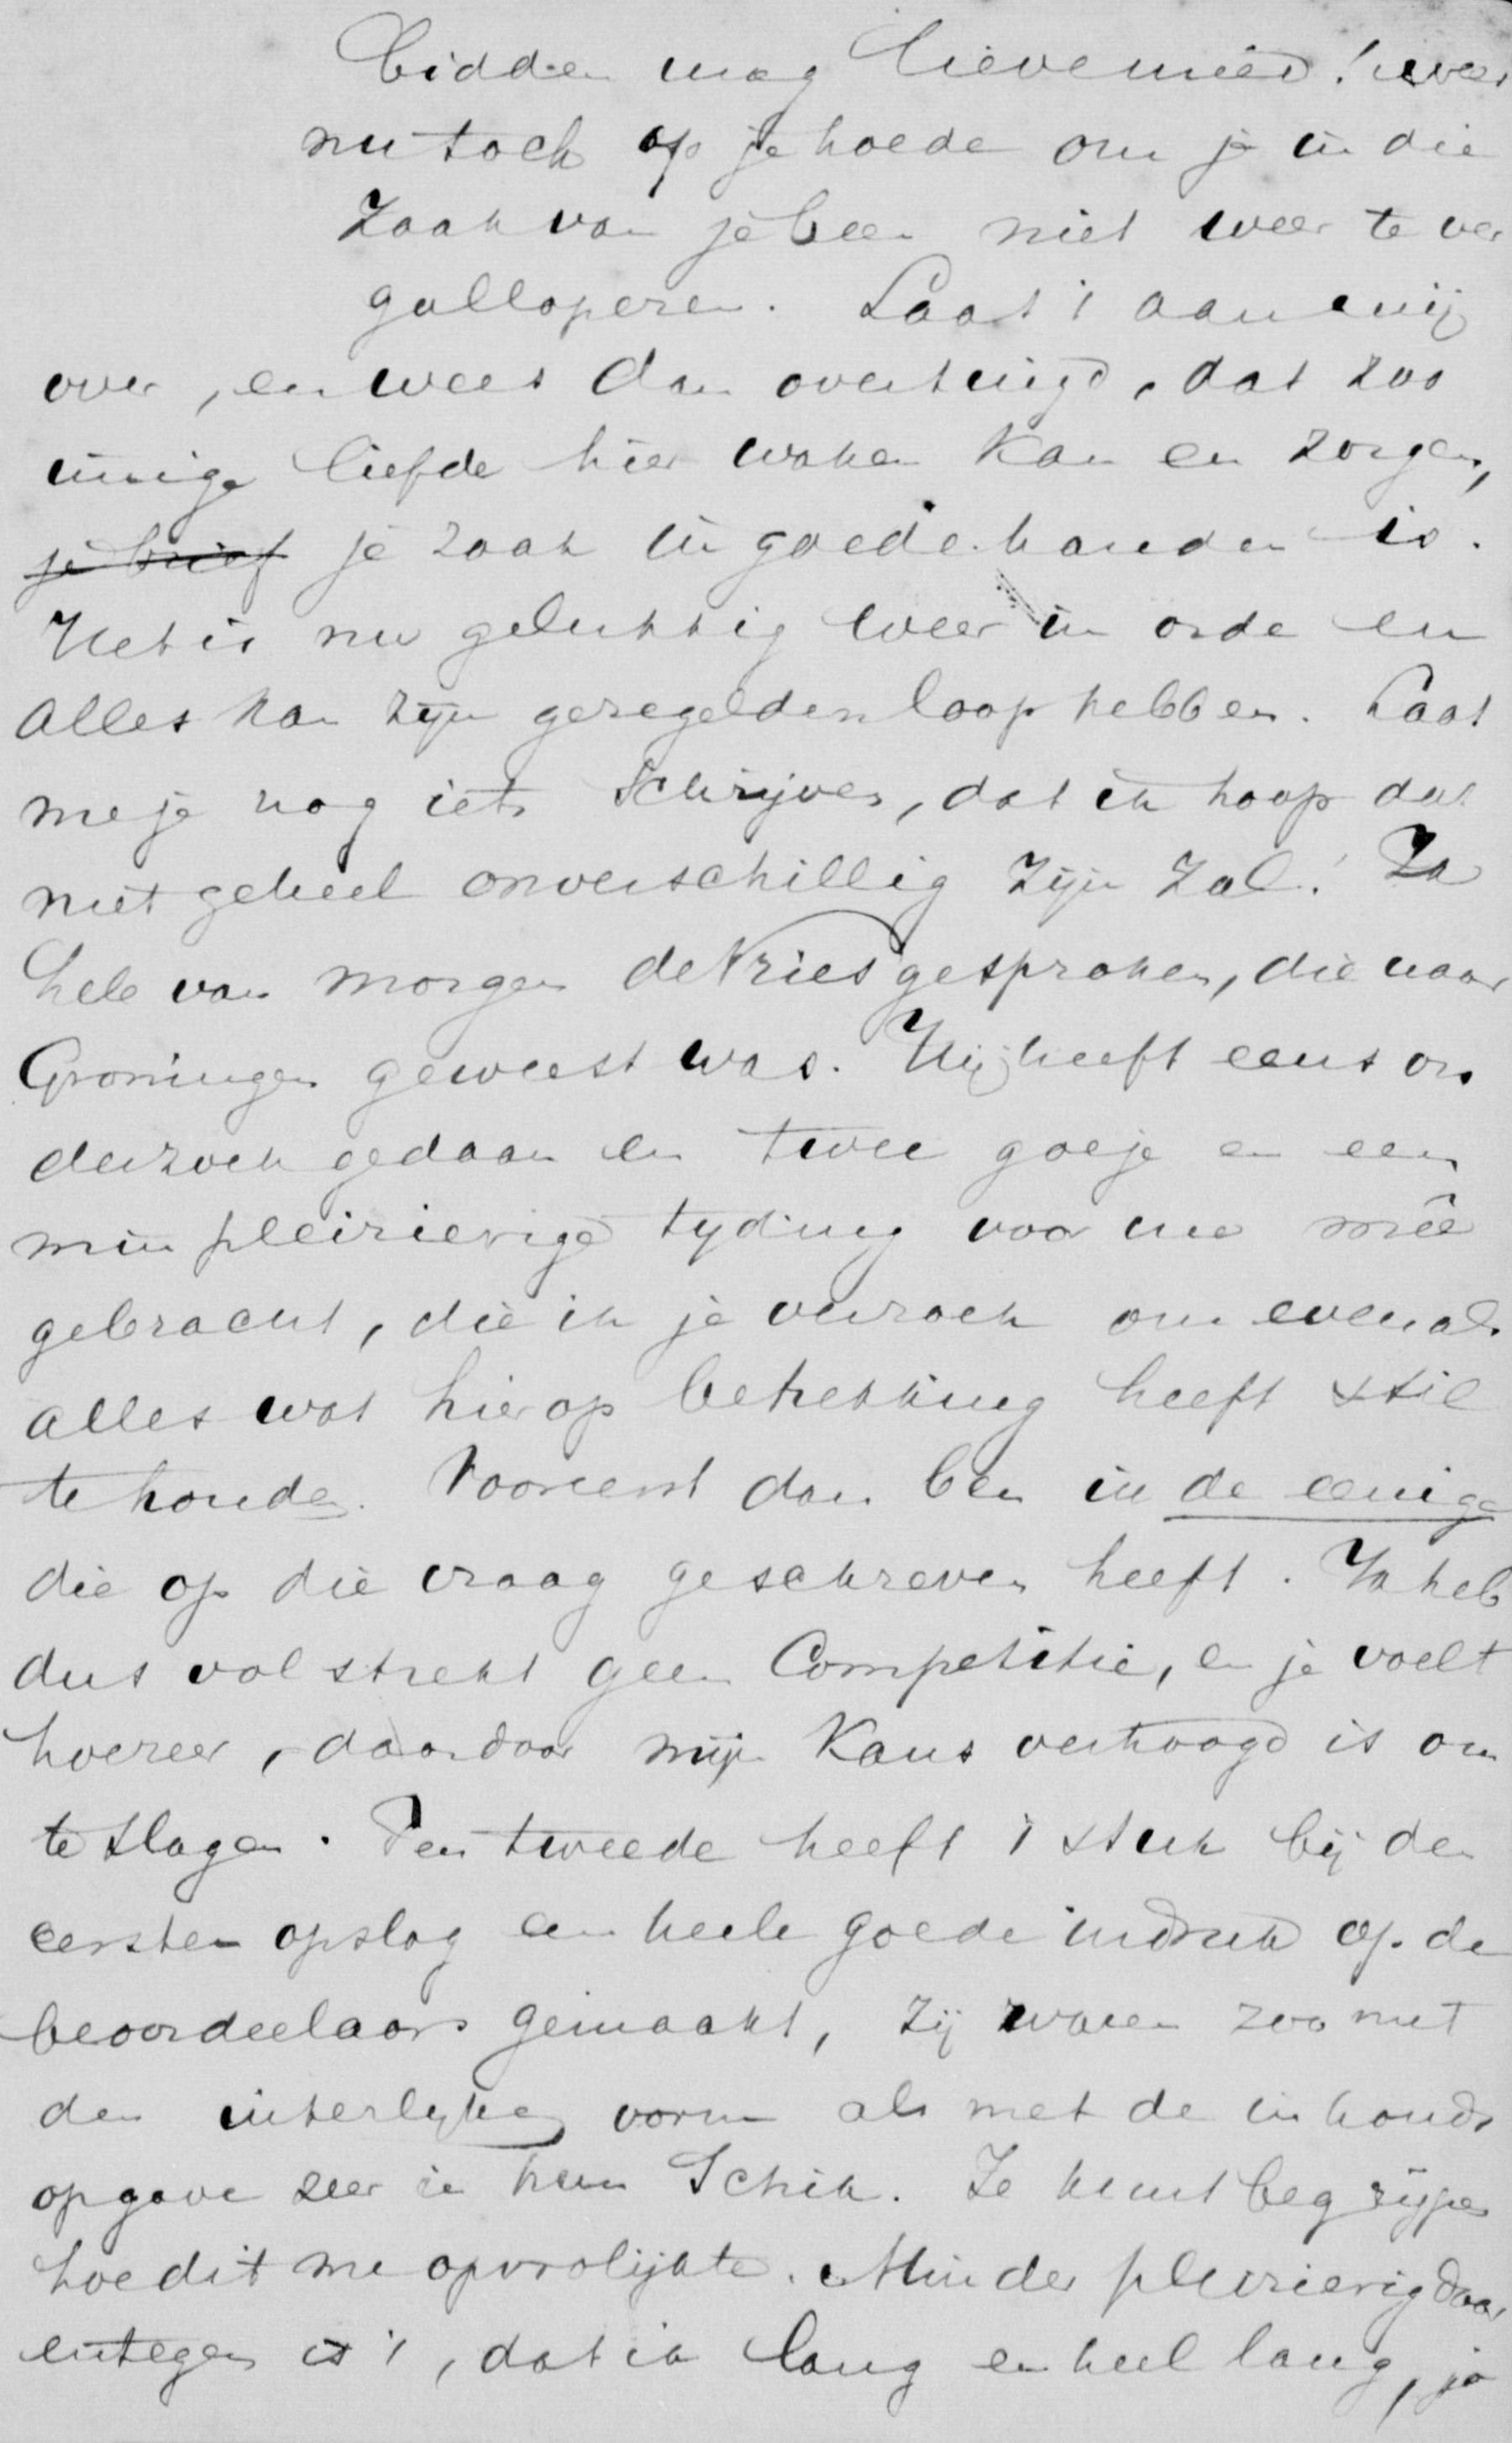 bidden mag lieve meid! wees
nu toch op je hoede om je in die
zaak van je been niet weer te ver
galloperen. Laat 't aan mij
over, en wees dan overtuigd, dat zoo
innige liefde hier waken kan en zorgen,
je brief je zaak in goede handen is.
Het is nu gelukkig weer in orde en
alles kan zijn geregelden loop hebben. Laat
me je nog iets schrijven, dat ik hoop dat
niet geheel onverschillig zijn zal! Ik
heb van morgen de Vries gesproken, die naar
Groningen geweest was. Hij heeft eens on
derzoek gedaan en twee goeje en een
min pleizierige tyding voor me meê
gebracht, die ik je verzoek om evenals
alles wat hierop betrekking heeft stil
te houden. Vooreerst dan ben ik de eenige
die op die vraag geschreven heeft. Ik heb
dus volstrekt geen Competitie, en je voelt
hoezeer, daardoor mijn Kans verhoogd is om
te slagen. Ten tweede heeft 't stuk bij den
eersten opslag een heele goede indruk op de
beoordeelaars gemaakt, zij waren zoo met
den uiterlyken vorm als met de inhouds
opgave zeer in hun Schik. Je kunt begrijpen
hoe dit me opvrolijkte. Minder pleizierig daar
entegen is 't, dat ik lang en heel lang, ja